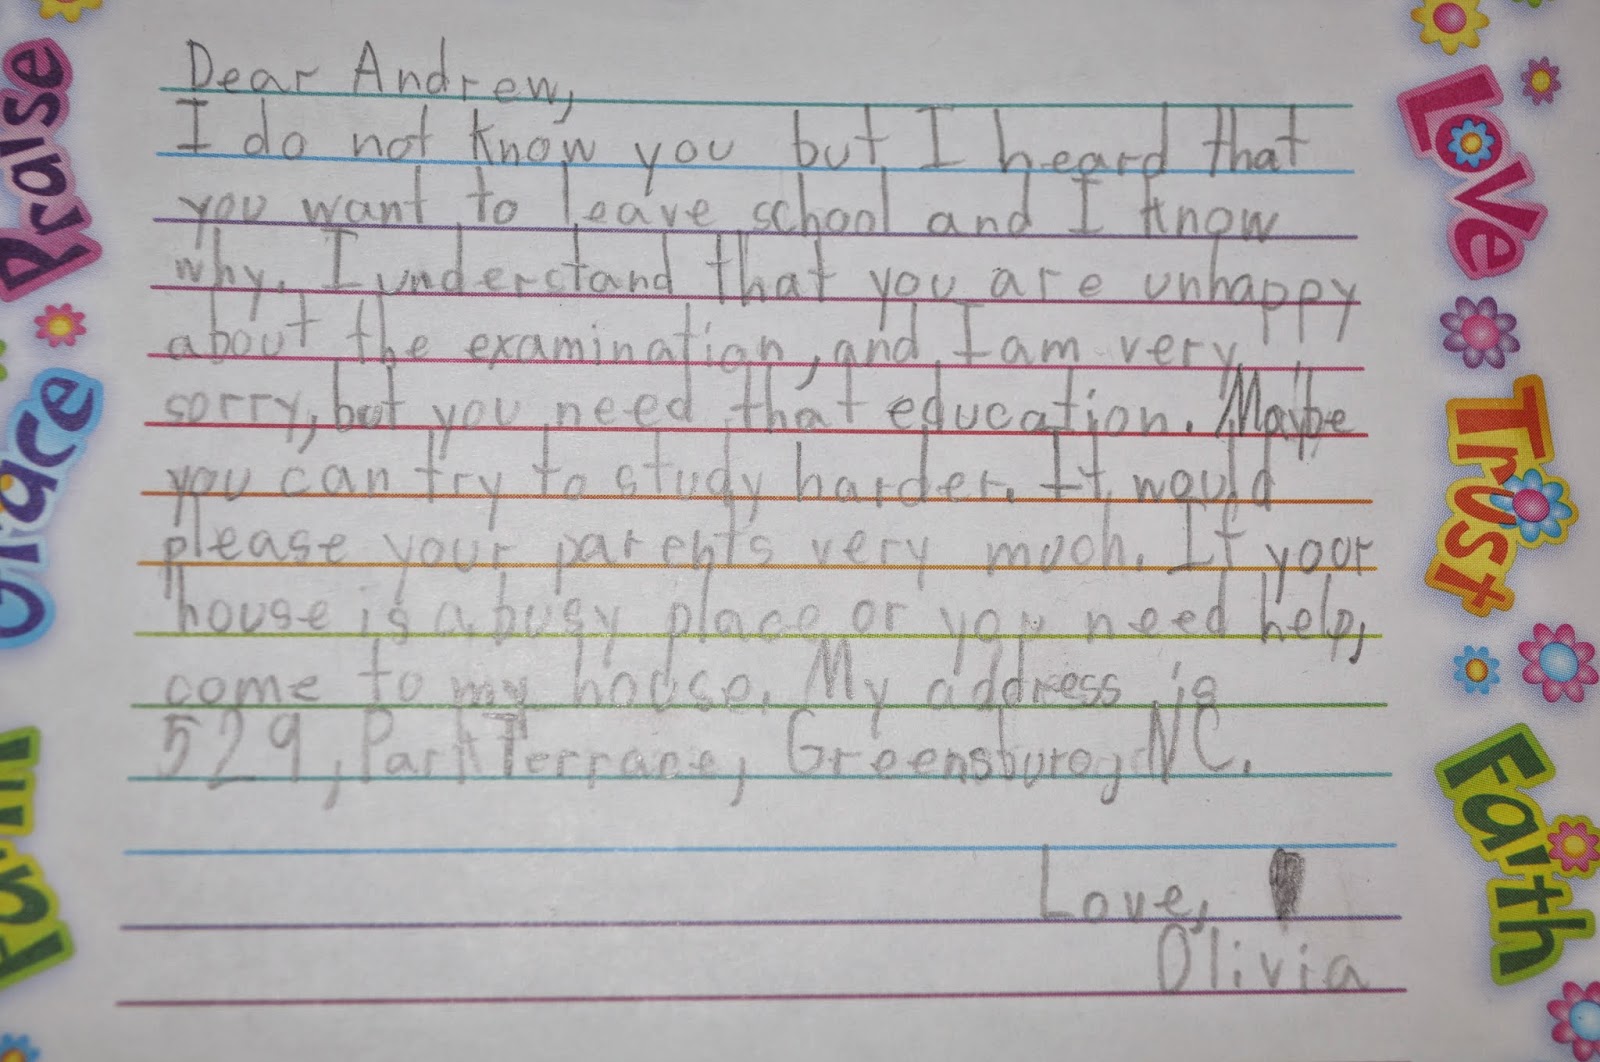 Dear Andrew,
I do not know you but I heard that
you want to leave school and I know
why. I understand that you are unhappy
about the examination, and I am very
sorry, but you need that education. Maybe
you can try to study harder. It would
please your parents very much. If your
house is a busy place or you need help,
come to my house. My address is
529, Park Terrace, Greensburg, NC.
Love,
Olivia
Praise
Grace
Faith
Love
Trust
Faith